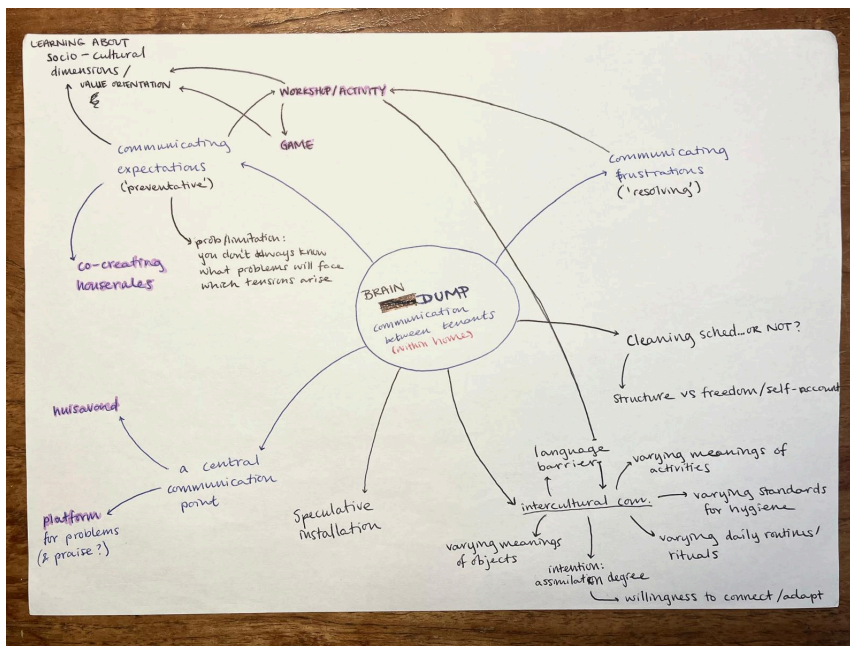 LEARNING ABOUT
socio-cultural
dimensions/
VALUE ORIENTATION
WORKSHOP/ACTIVITY
GAME
communicating
expectations
('preventative')
communicating
frustrations
('resolving')
co-creating
houserules
prob/limitation:
you don't always know
what problems will face
which tensions arise
BRAIN DUMP
communication
between tenants
(within home)
Cleaning sched...OR NOT?
Structure vs freedom/self-account
huisavond
a central
communication
point
platform
for problems
(& praise?)
Speculative
installation
language
barrier
intercultural com.
varying meanings of
activities
varying standards
for hygiene
varying daily routines/
rituals
varying meanings
of objects
intention:
assimilation degree
willingness to connect/adapt